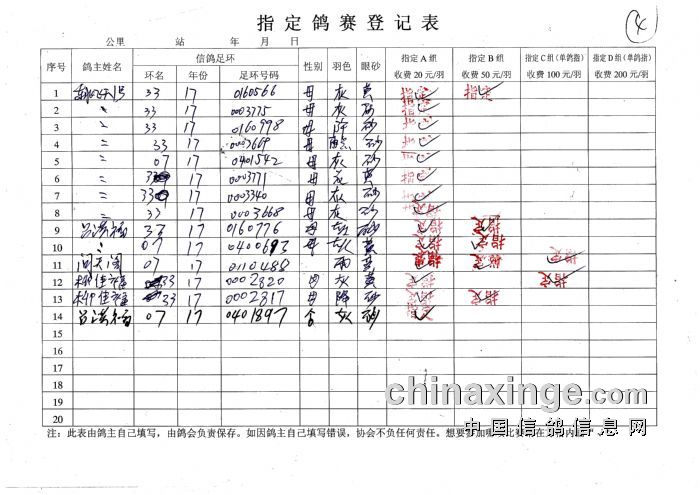 指定鸽赛登记表
4
公里 站 年 月 日
序号 鸽主姓名 信鸽足环 性别 羽色 眼砂 指定A组 指定B组 指定C组(单鸽指) 指定D组(单鸽指)
环名 年份 足环号码 收费20元/羽 收费50元/羽 收费100元/羽 收费200元/羽
1 33 17 0160566 母 灰 黄 指定 指定
2 〃 33 17 0003775 母 灰 砂 指定
3 〃 33 17 0160998 母 砂 指定
4 〃 33 17 0003669 母 砂 指定
5 〃 07 17 0401542 母 灰 砂 指定
6 〃 33 17 0003771 母 黄 指定
7 〃 33 17 0003340 母 灰 砂 指定
8 〃 33 17 0003668 母 灰 砂 指定
9 吕洪福 37 17 0160776 母 砂 指定 指定
10 〃 07 17 0400693 母 灰 黄 指定 指定
11 07 17 0110485 雨 黄 指定 指定 指定
12 柳佳福 33 17 0002820 母 灰 黄 指定 指定
13 柳佳福 33 17 0002817 母 砂 指定 指定
14 吕洪福 07 17 0401897 灰 砂 指定
15
16
17
18
19
20
注:此表由鸽主自己填写,由鸽会负责保存。如因鸽主自己填写错误,协会不负任何责任。想要参加
chinaxinge.com
中国信鸽信息网